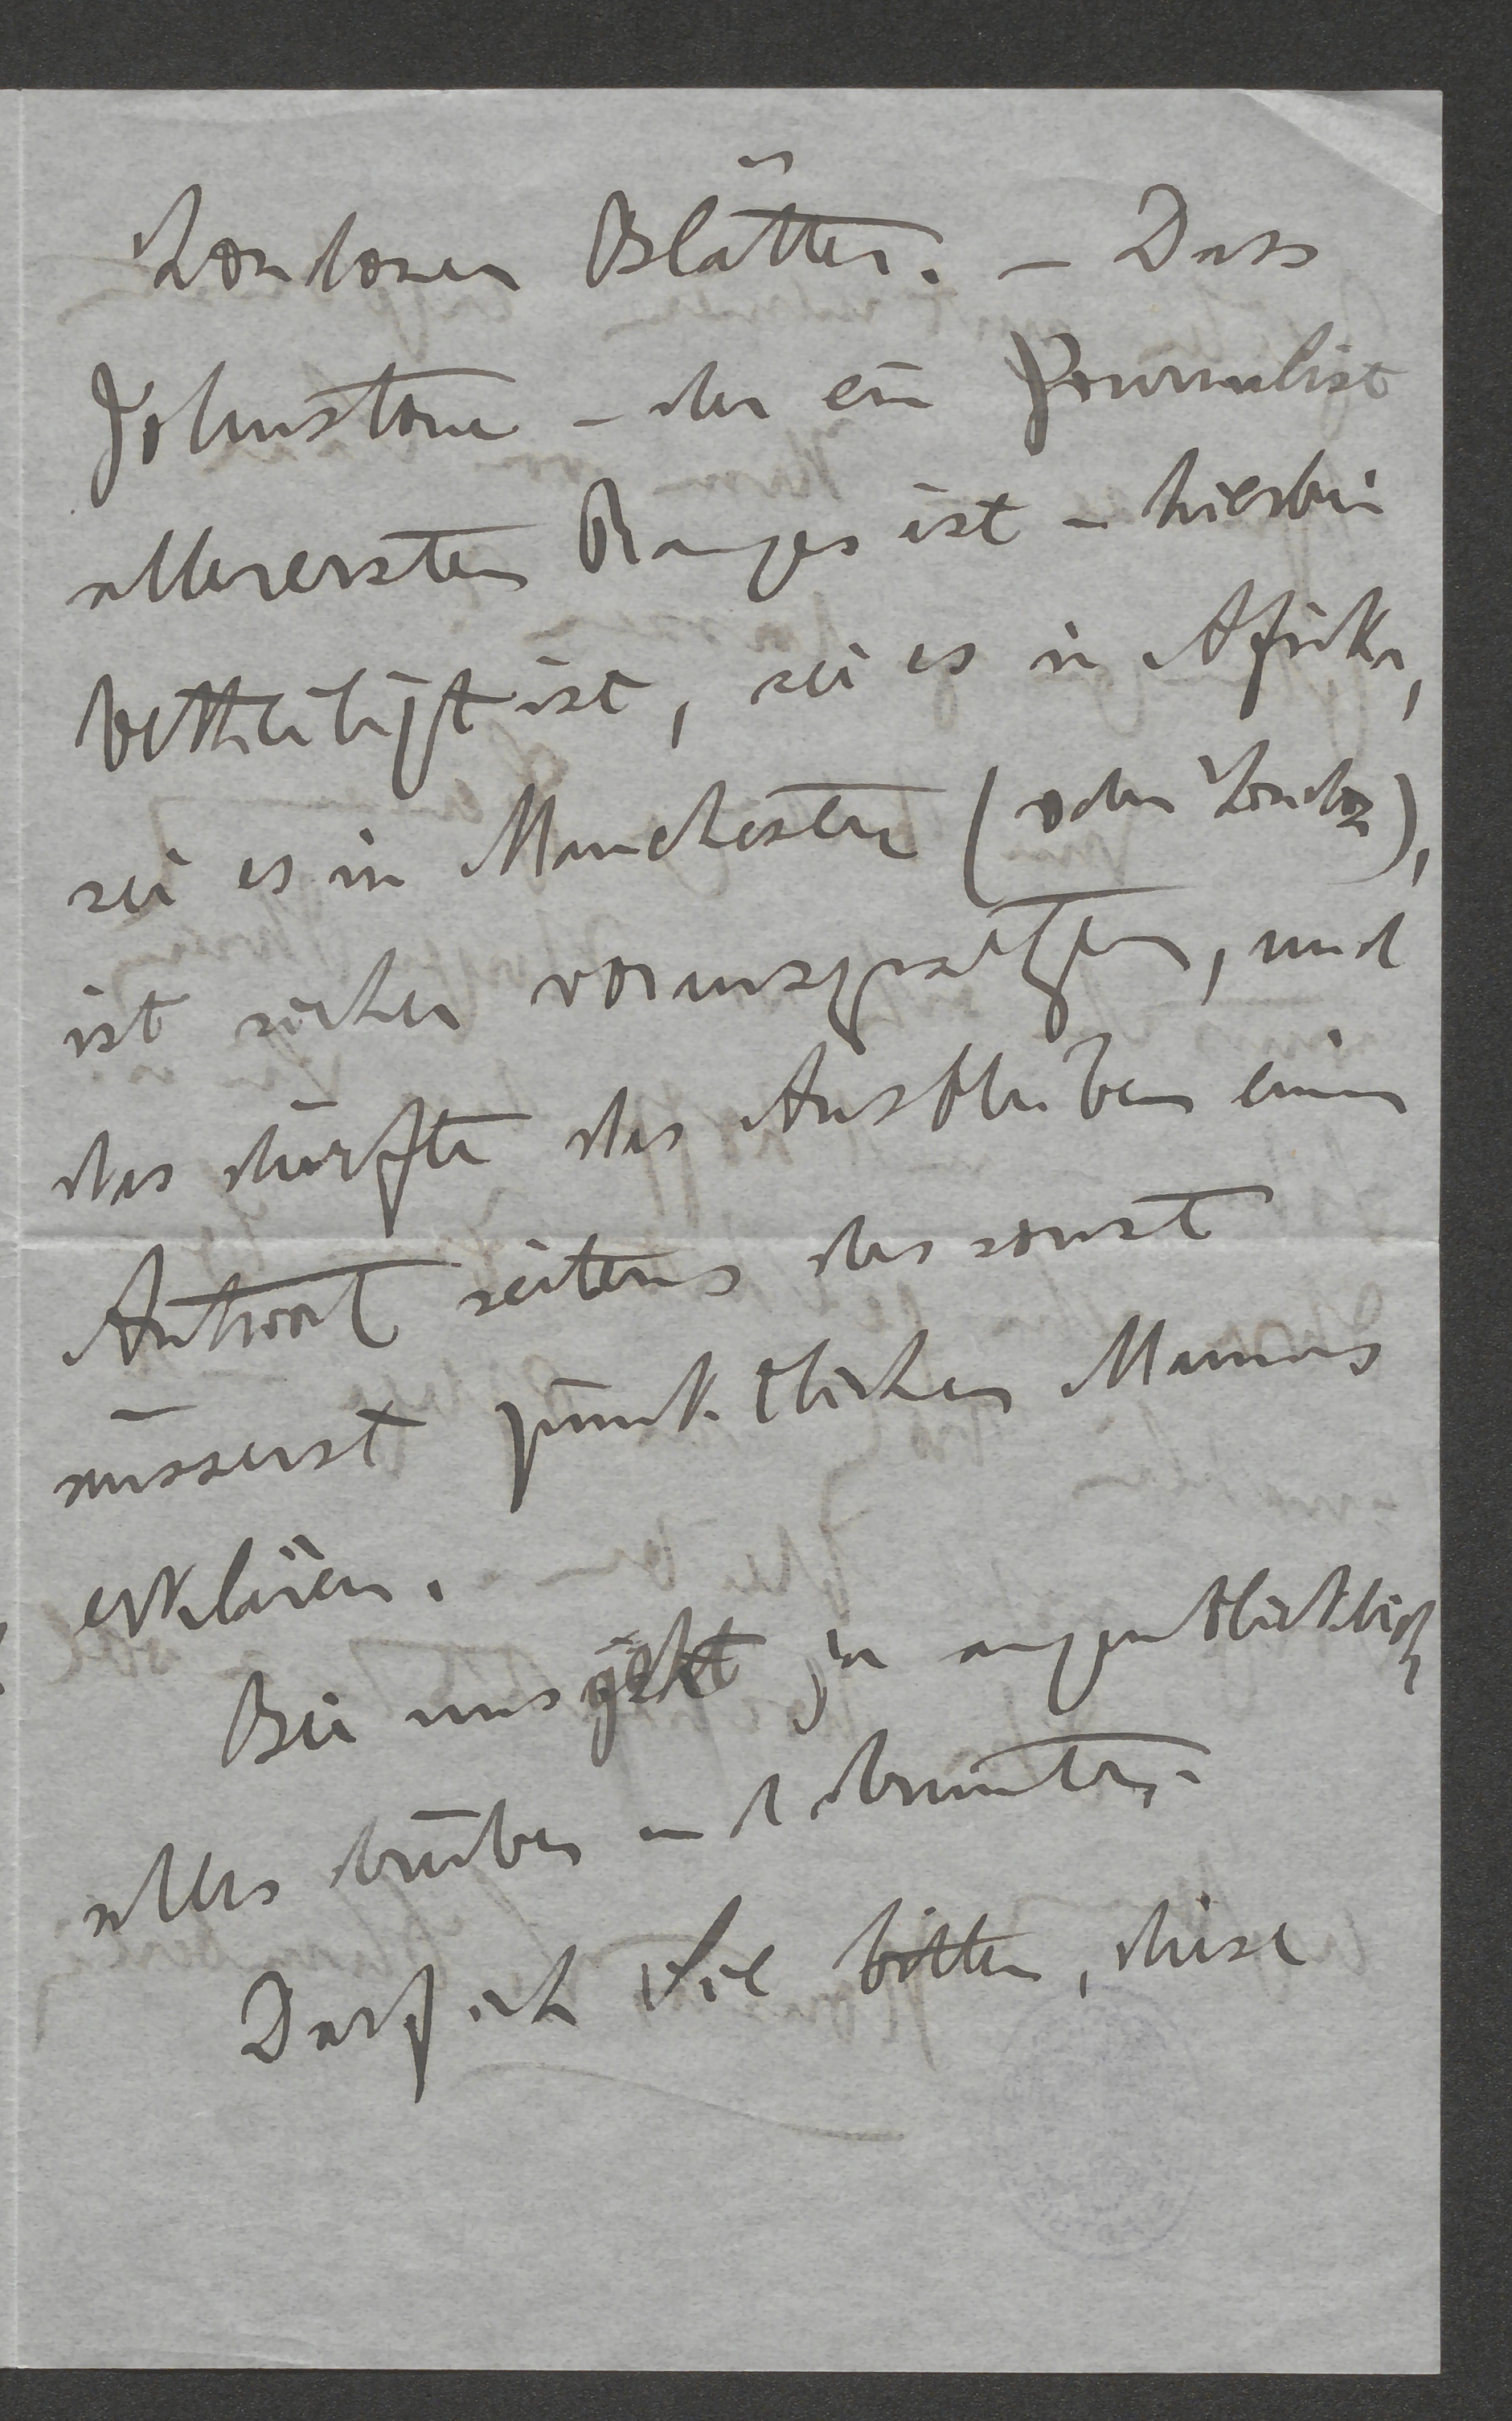 Londoner Blätter. – Dass
Johnstone – der ein Journalist
allerersten Ranges ist – hierbei
betheiligt ist, sei es in Afrika,
sei es in Manchester (oder London),
ist sicher vorauszusetzen, und
das dürfte das Ausbleiben einer
Antwort seitens des sonst
äusserst pünktlichen Mannes
erklären.
Bei uns geht ja augenblicklich
alles drüber und drunter.
Darf ich Sie bitten, diese